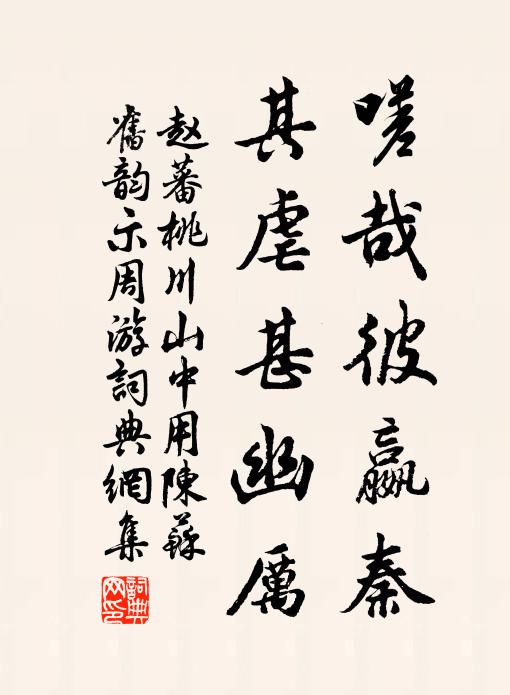 嗟哉彼嬴秦
其虐甚幽厲
赵蕃桃川山中用陳蘇
舊韵示周游詞典網集
詞典網印